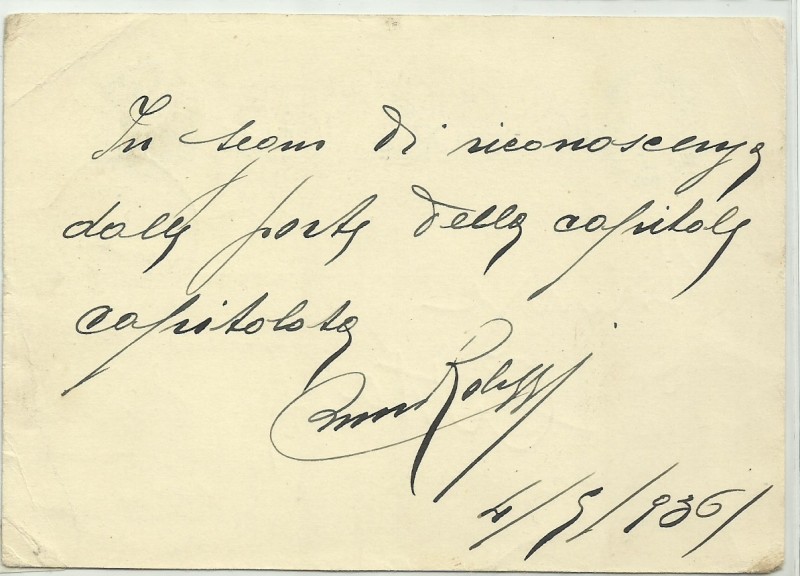 In segno di riconoscenza
dalle porte della capitale
capitolata
4/5/936/